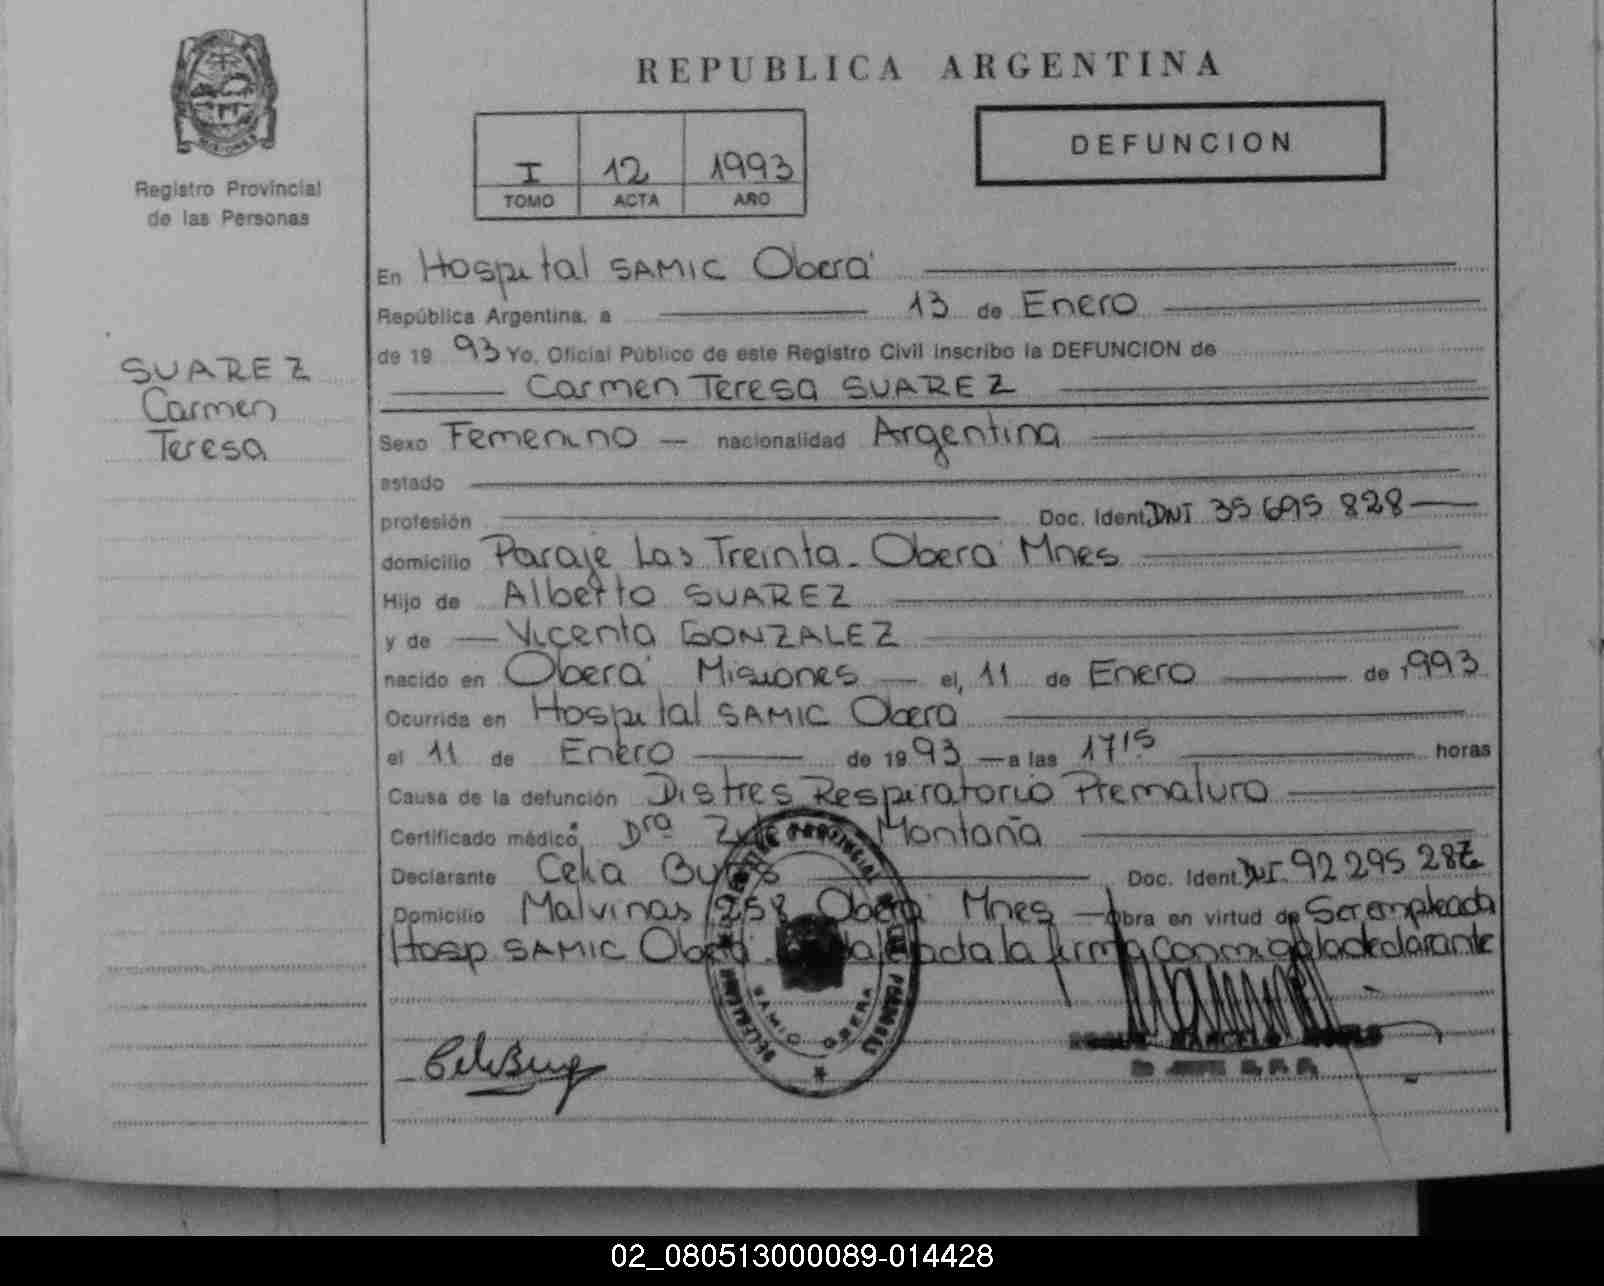 REPUBLICA ARGENTINA
DEFUNCION
I 12 1993
TOMO ACTA AÑO
Registro Provincial
de las Personas
SUAREZ
Carmen
Teresa
En Hospital SAMIC Oberá
República Argentina, a 13 de Enero
de 19 93 Yo, Oficial Público de este Registro Civil inscribo la DEFUNCION de
Carmen Teresa SUAREZ
Sexo Femenino - nacionalidad Argentina
estado
profesión Doc. Ident. DNI 35 695 828
domicilio Paraje Las Treinta - Oberá Mnes
Hijo de Alberto SUAREZ
y de Vicenta GONZALEZ
nacido en Oberá Misiones el, 11 de Enero de 1993
Ocurrida en Hospital SAMIC Obera
el 11 de Enero de 19 93 a las 17 15 horas
Causa de la defunción Distres Respiratorio Prematuro
Certificado médico, Dra Montaña
Declarante Celia Doc. Ident. DNI. 92 295 287
Domicilio Malvinas 1258 Oberá Mnes - obra en virtud de Ser empleada
Hosp SAMIC Oberá. acta la firma conmigo la declarante
REGISTRO PROVINCIAL DE LAS PERSONAS
SAMIC OBERA
DELEGACION
02_080513000089-014428